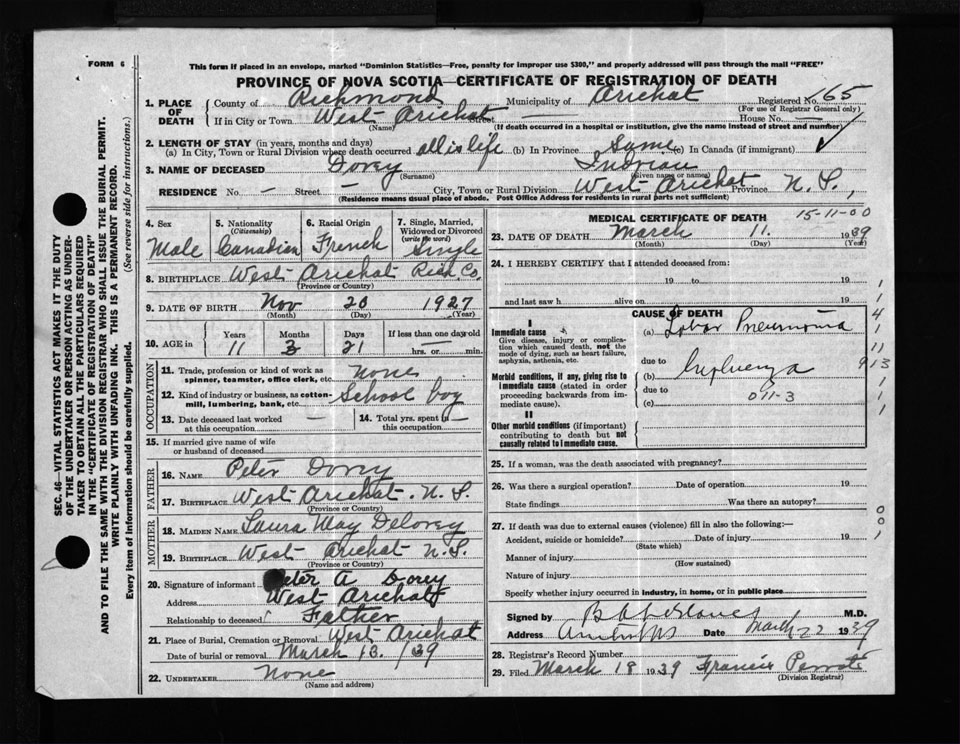 FORM 6
This form if placed in an envelope, marked "Dominion Statistics—Free, penalty for improper use $300," and properly addressed will pass through the mail "FREE"
PROVINCE OF NOVA SCOTIA—CERTIFICATE OF REGISTRATION OF DEATH
SEC. 46—VITAL STATISTICS ACT MAKES IT THE DUTY
OF THE UNDERTAKER OR PERSON ACTING AS UNDER-
TAKER TO OBTAIN ALL THE PARTICULARS REQUIRED
IN THE "CERTIFICATE OF REGISTRATION OF DEATH"
AND TO FILE THE SAME WITH THE DIVISION REGISTRAR WHO SHALL ISSUE THE BURIAL PERMIT.
WRITE PLAINLY WITH UNFADING INK. THIS IS A PERMANENT RECORD.
Every item of Information should be carefully supplied. (See reverse side for instructions.)
1. PLACE OF DEATH County of Richmond Municipality of Arichat Registered No. 165
(For use of Registrar General only)
If in City or Town West Arichat Street — House No. —
(Name) (If death occurred in a hospital or institution, give the name instead of street and number)
2. LENGTH OF STAY (in years, months and days)
(a) In City, Town or Rural Division where death occurred all is life (b) In Province Same (c) In Canada (if immigrant) ✓
3. NAME OF DECEASED Dorey
(Surname) (Given name or names)
RESIDENCE No — Street — City, Town or Rural Division West Arichat Province N. S.
(Residence means usual place of abode. Post Office Address for residents in rural parts not sufficient)
4. Sex 5. Nationality 6. Racial Origin 7. Single, Married,
(Citizenship) Widowed or Divorced
(write the word)
Male Canadian French Single
8. BIRTHPLACE West Arichat Rich. Co.
(Province or Country)
9. DATE OF BIRTH Nov 20 1927
(Month) (Day) (Year)
10. AGE in Years Months Days If less than one day old
11 3 21 — hrs. or min.
OCCUPATION
11. Trade, profession or kind of work as
spinner, teamster, office clerk, etc. None
12. Kind of industry or business, as cotton-
mill, lumbering, bank, etc. School boy
13. Date deceased last worked at this occupation — 14. Total yrs. spent in this occupation —
15. If married give name of wife
or husband of deceased
FATHER
16. NAME Peter Dorey
17. BIRTHPLACE West Arichat. N. S.
(Province or Country)
MOTHER
18. MAIDEN NAME Laura May Delorey
19. BIRTHPLACE West Arichat N. S.
(Province or Country)
20. Signature of informant Peter A Dorey
Address West Arichat
Relationship to deceased Father
21. Place of Burial, Cremation or Removal West Arichat
Date of burial or removal March 13. /39
22. UNDERTAKER None
(Name and address)
MEDICAL CERTIFICATE OF DEATH
15-11-00
23. DATE OF DEATH March 11. 1939
(Month) (Day) (Year)
24. I HEREBY CERTIFY that I attended deceased from:
19 to 19
and last saw h alive on 19
CAUSE OF DEATH
I
Immediate cause
Give disease, injury or complica-
tion which caused death, not the
mode of dying, such as heart failure,
asphyxia, asthenia, etc.
(a) Lobar Pneumonia
due to
Morbid conditions, if any, giving rise to
immediate cause (stated in order
proceeding backwards from im-
mediate cause).
(b) Influenza
due to 011-3
(c)
II
Other morbid conditions (if important)
contributing to death but not
causally related to immediate cause.
1
1
4
1
11
9 13
1
1
1
25. If a woman, was the death associated with pregnancy?
26. Was there a surgical operation? Date of operation 19
State findings Was there an autopsy?
27. If death was due to external causes (violence) fill in also the following:—
Accident, suicide or homicide? Date of injury 19
(State which)
Manner of injury
(How sustained)
Nature of injury
Specify whether injury occurred in industry, in home, or in public place
0
0
1
Signed by M.D.
Address Date March 22 1939
28. Registrar's Record Number
29. Filed March 18 1939 Francis
(Division Registrar)